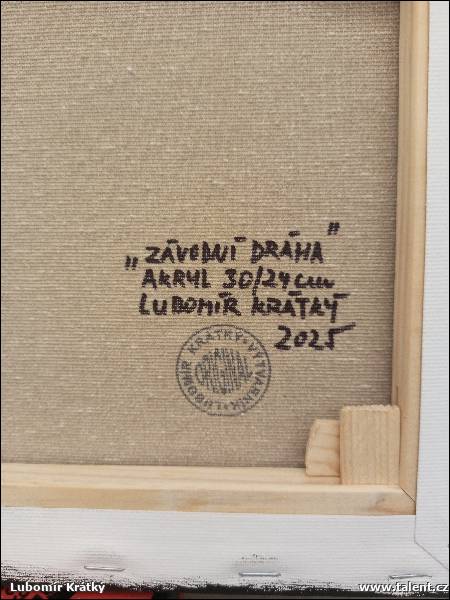 „ZÁVODNÍ DRÁHA"
AKRYL 30/24 cm
LUBOMÍR KRÁTKÝ
2025
LUBOMÍR KRÁTKÝ · VÝTVARNÍK ·
ORIGINAL
Lubomír Krátký
www.talent.cz